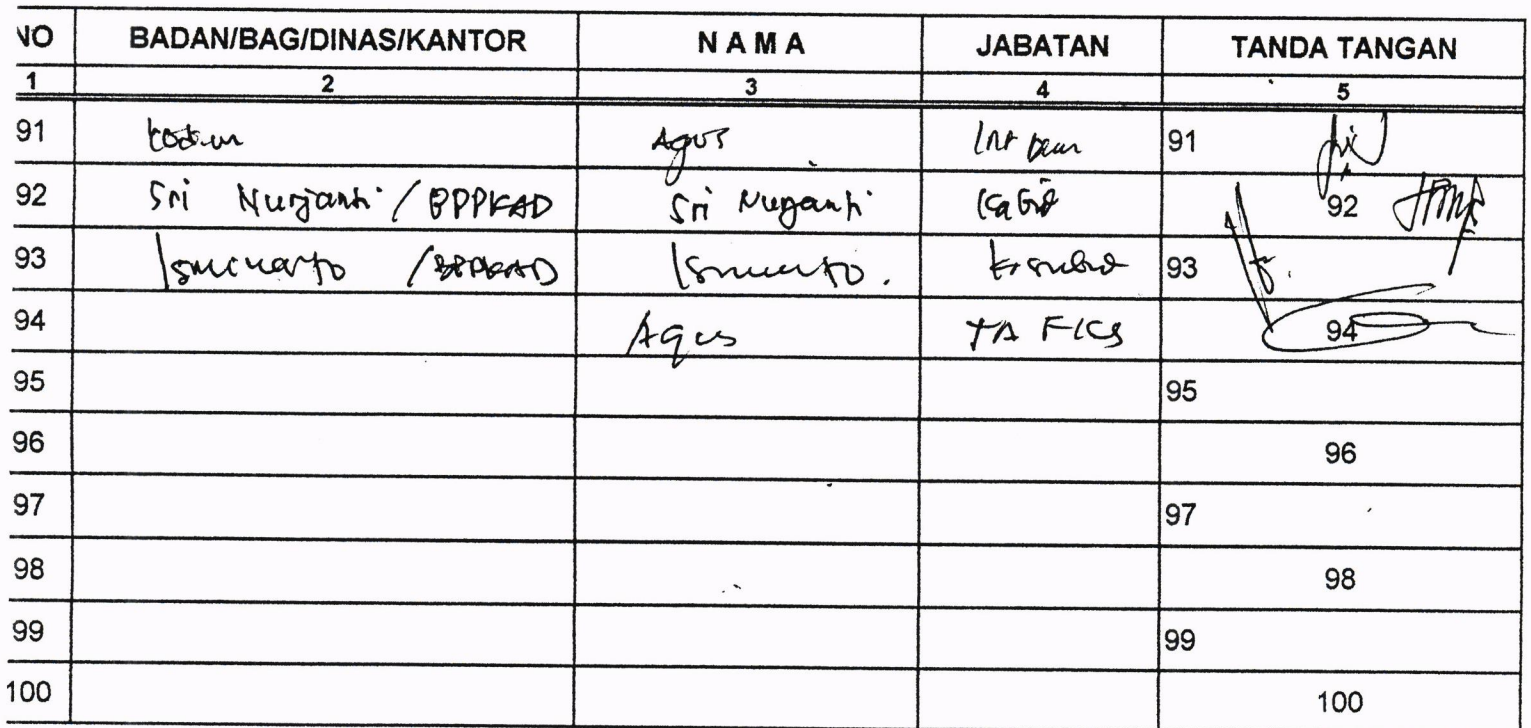 NO BADAN/BAG/DINAS/KANTOR N A M A JABATAN TANDA TANGAN
1 2 3 4 5
91 Agus 91
92 Sri Nurjanti / BPPKAD Sri Nurjanti Kabid 92
93 Ismunarto / BPPKAD 93
94 Agus TA 94
95 95
96 96
97 97
98 98
99 99
100 100